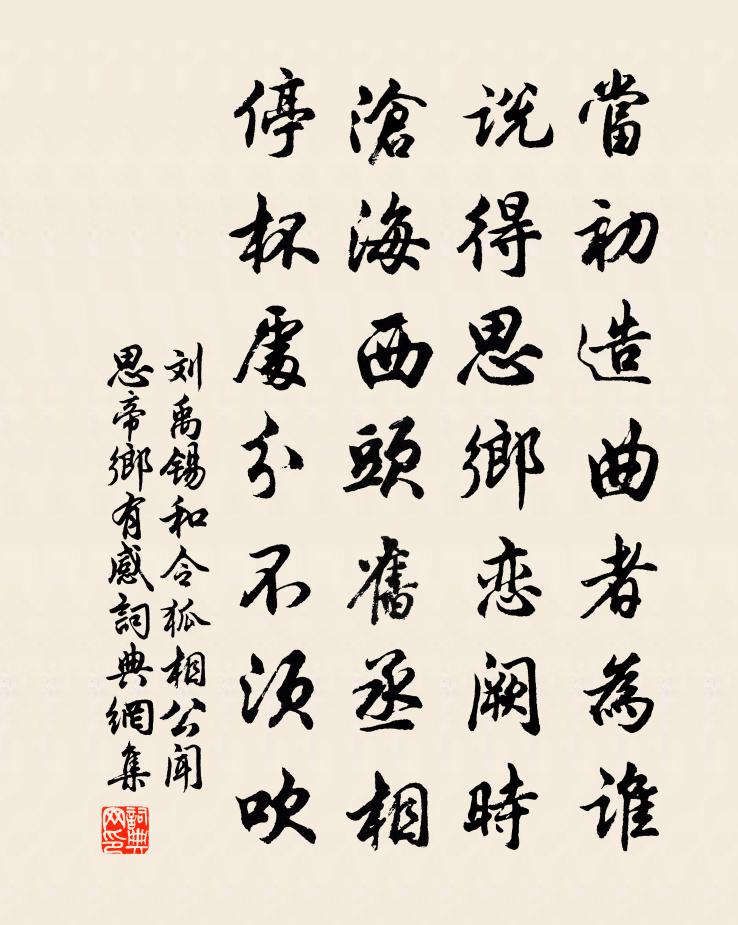 當初造曲者為誰
説得思鄉恋闕時
滄海西頭舊丞相
停杯處分不須吹
刘禹锡和令狐相公闻
思帝鄉有感詞典網集
詞典
网印